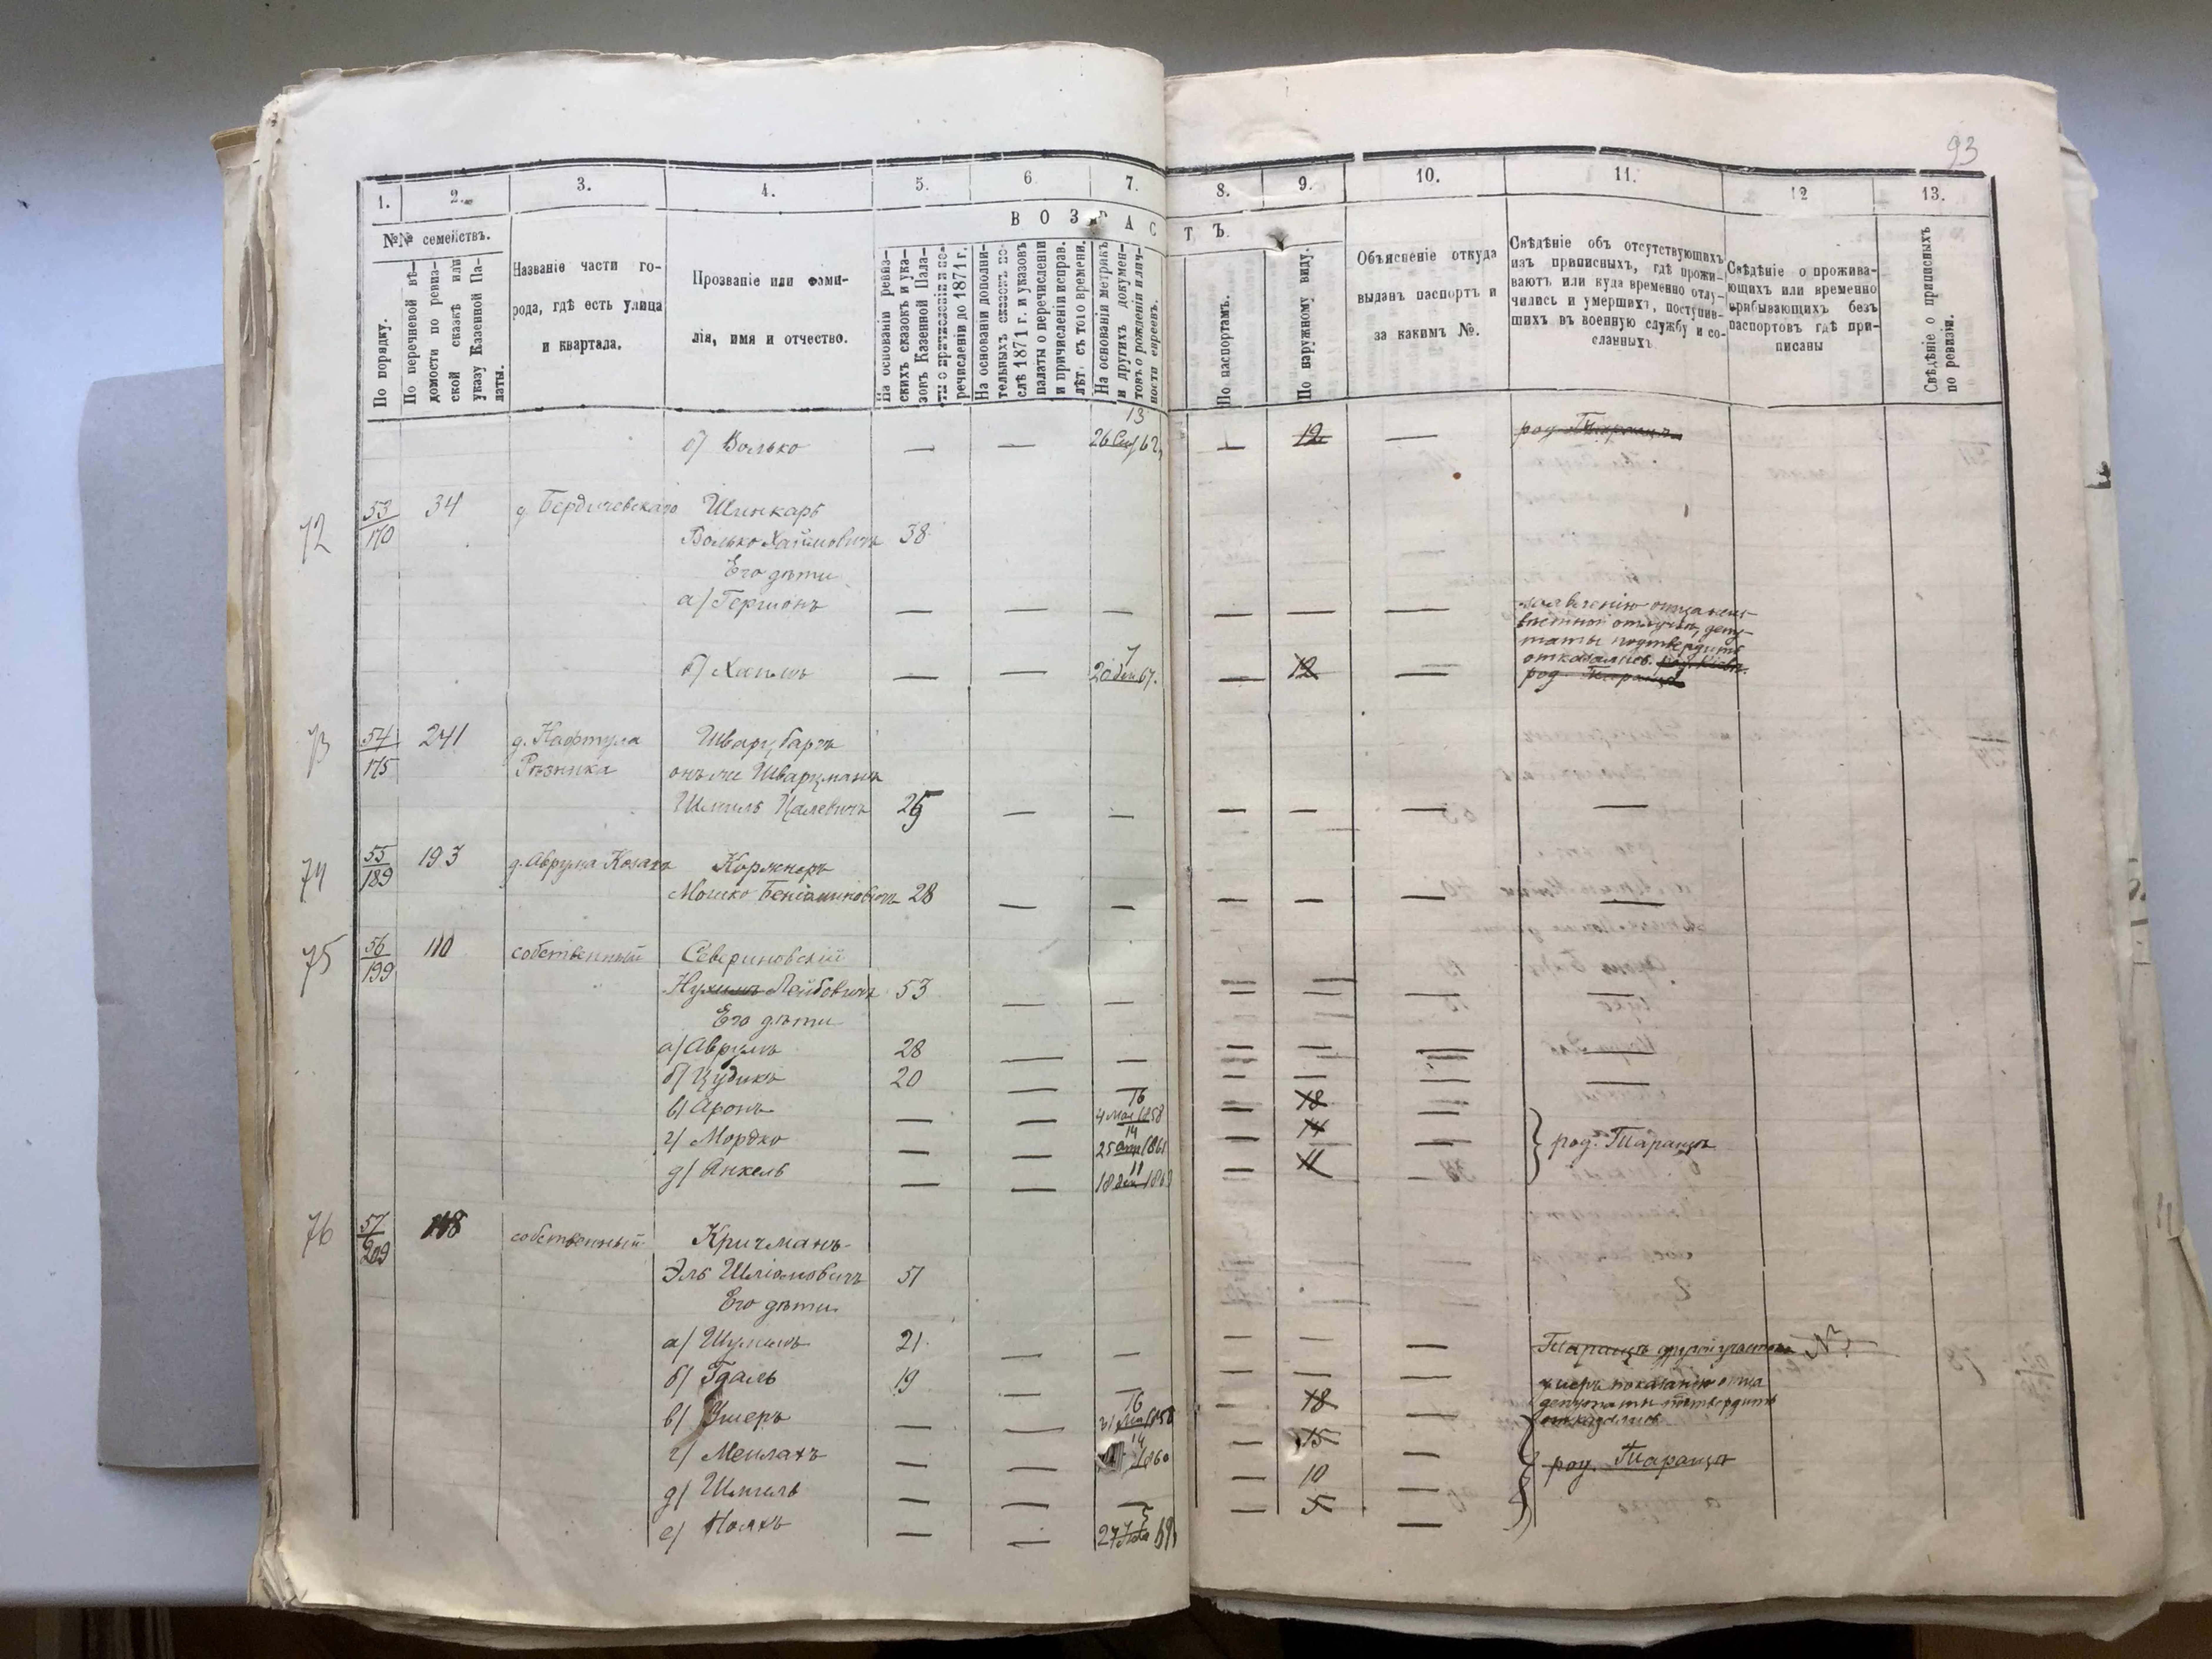 93
1.
2.
3.
4.
5.
6
7.
8.
9.
10.
11.
12
13.
№№ семействъ.
По порядку.
По перечневой вѣ-
домости по ревиз-
ской сказкѣ или
указу Казенной Па-
латы.
Названіе части го-
рода, гдѣ есть улица
и квартала.
Прозваніе или фами-
лія, имя и отчество.
ВОЗРАСТЪ.
На основаніи ревиз-
скихъ сказокъ и ука-
зовъ Казенной Пала-
ты о причисленіи и пе-
речисленіи до 1871 г.
На основаніи дополни-
тельныхъ сказокъ по-
слѣ 1871 г. и указовъ
палаты о перечисленіи
и причисленіи исправ.
лѣт. съ того времени.
На основаніи метрикъ
и другихъ докумен-
товъ о рожденіи и лич-
ности евреевъ.
По паспортамъ.
По наружному виду.
Объясненіе откуда
выданъ паспортъ и
за какимъ №.
Свѣдѣніе объ отсутствующихъ
изъ приписныхъ, гдѣ прожи-
ваютъ или куда временно отлу-
чились и умершихъ, поступив-
шихъ въ военную службу и со-
сланныхъ
Свѣдѣніе о прожива-
ющихъ или временно
прибывающихъ безъ
паспортовъ гдѣ при-
писаны
Свѣдѣніе о приписныхъ
по ревизіи.
13
б) Волько — — 62 — 12 — род. Таращѣ
72 53/170 34 д Бердичевскаго Шинкарь
Волько Хаимовичъ 38
Его дѣти
а) Гершонъ — — — — — —
отказались.
7
б) Хаимъ — — 67. — 12 — род. Таращѣ
73 54/175 241 д. Нафтула Шварцбартъ
Рѣзника онъ же Шварцманъ
Шмиль 25 — — — — — —
74 55/189 193 д. Аврума Козака Коржнеръ
Мошко Беніаминовичъ 28 — — — — — —
75 56/199 110 собственный Севериновскій
Нухимъ Лейбовичъ 53 — — — — — —
Его дѣти
а) Аврумъ 28 — — — — — —
б) Цудикъ 20 — — — — — —
16
в) Аронъ — — 4 1858 — 18 —
14
г) Мордко — — 25 — 14 — род. Таращѣ
11
д) Анкель — — 18 — 11 —
76 57/209 118 собственный Кричманъ
Эль 51
Его дѣти
а) Шулимъ 21 — — — — — Таращѣ другой участокъ №
б) Гдаль 19 — — — — — умеръ показанію отца
депутаты подтвердить
отказались
16
в) Умеръ — — 1858 — 18 —
14
г) Мейлахъ — — 1860 — 15 — род. Таращѣ
д) Шмиль — — — — 10 —
5
е) Нояхъ — — 27 69 — 5 —